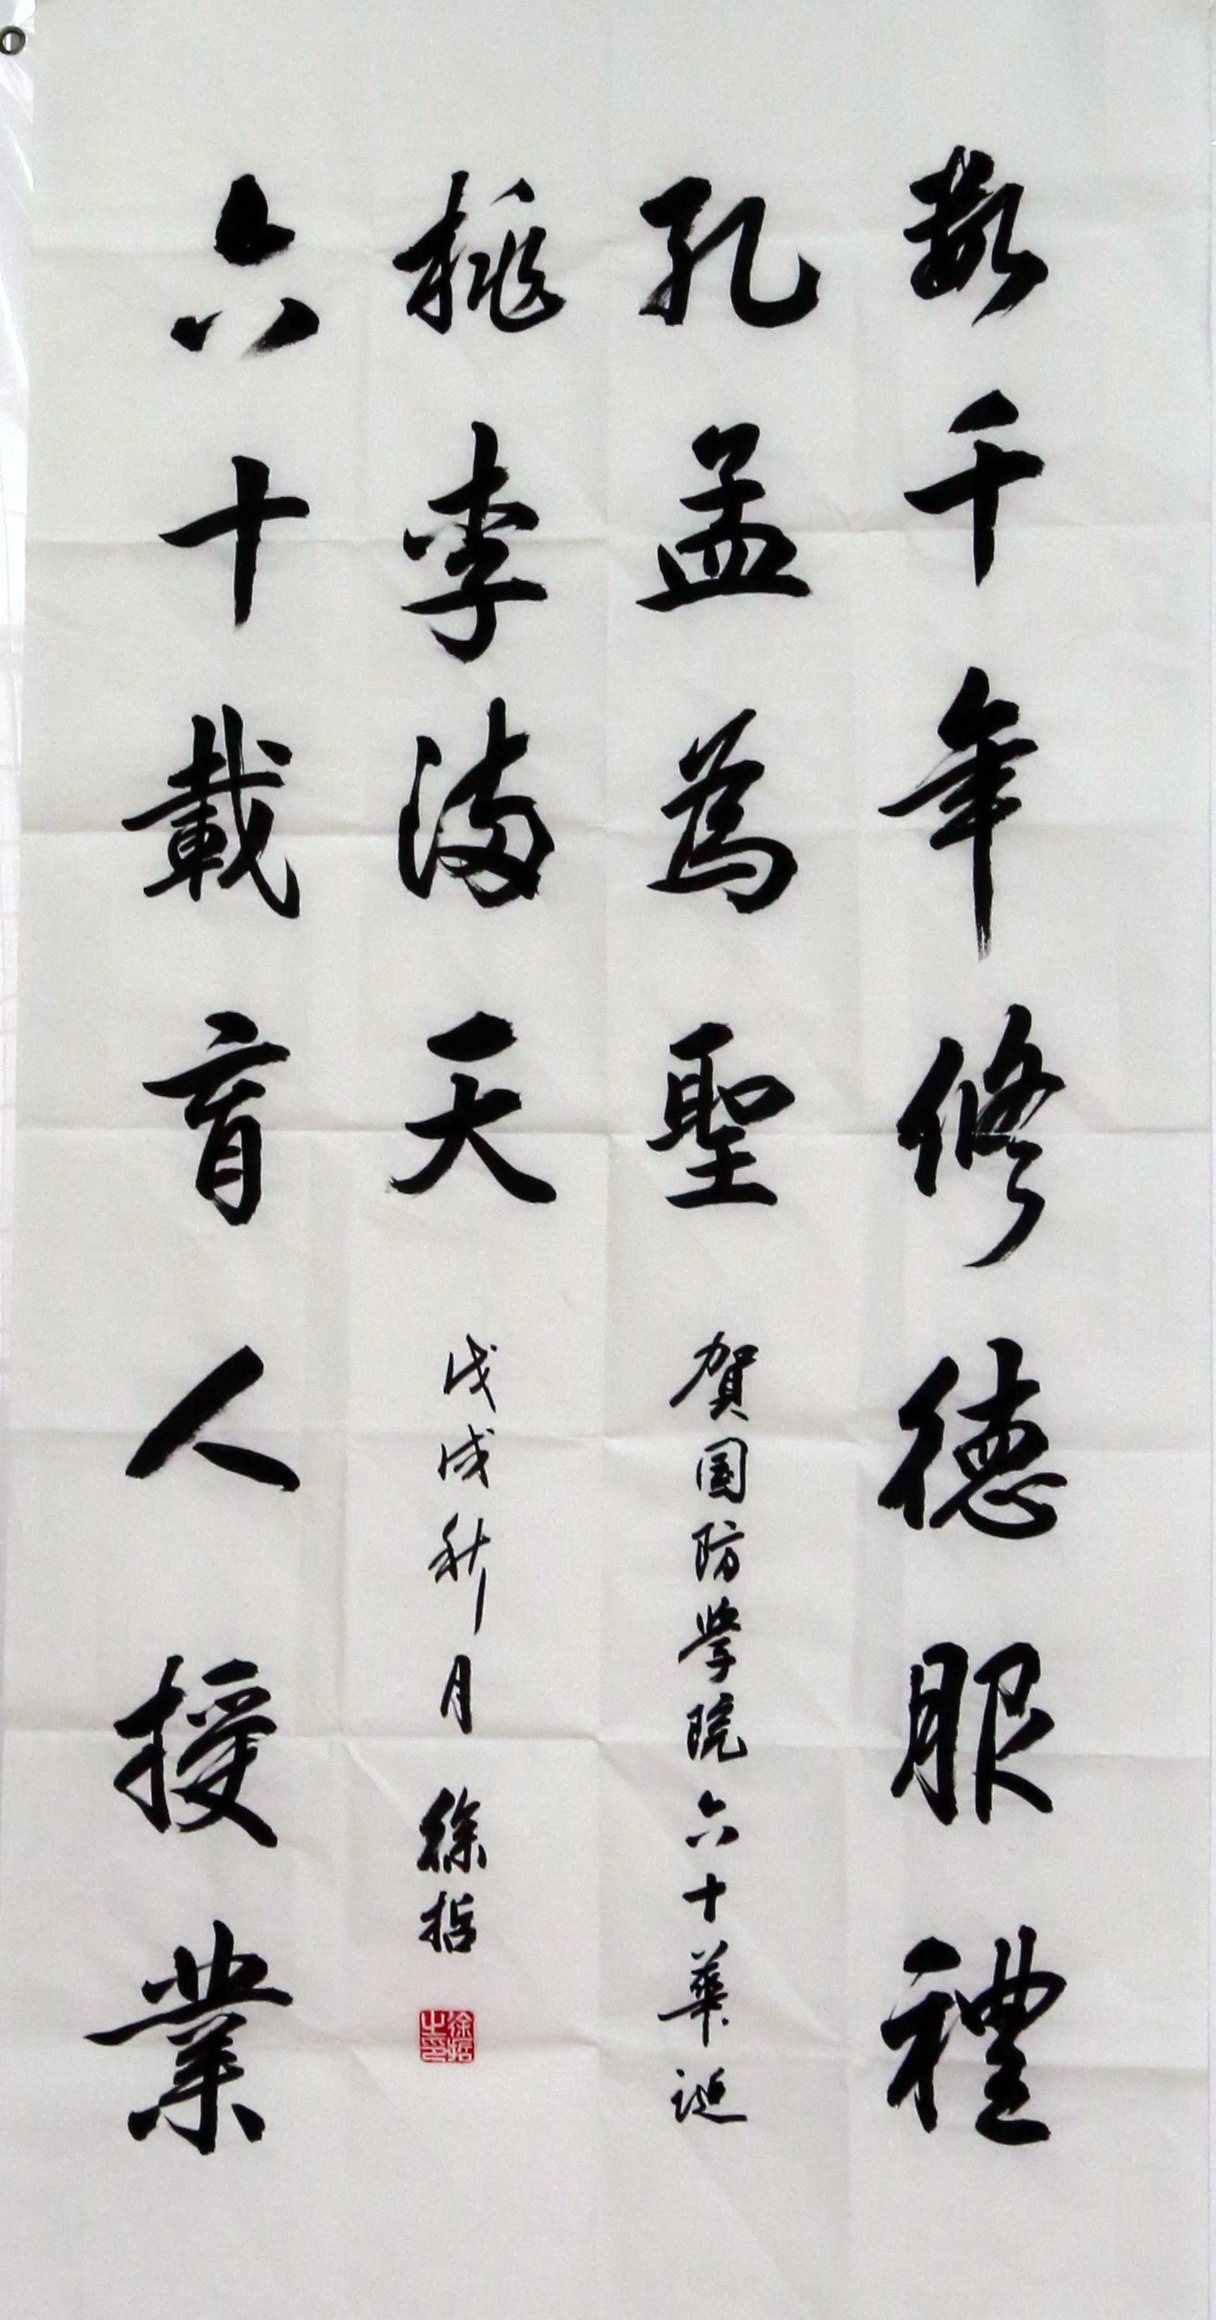 數千年修德服禮
孔孟為聖
賀国防学院六十華誕
六十載育人授業
桃李滿天
戊戌秋月 徐